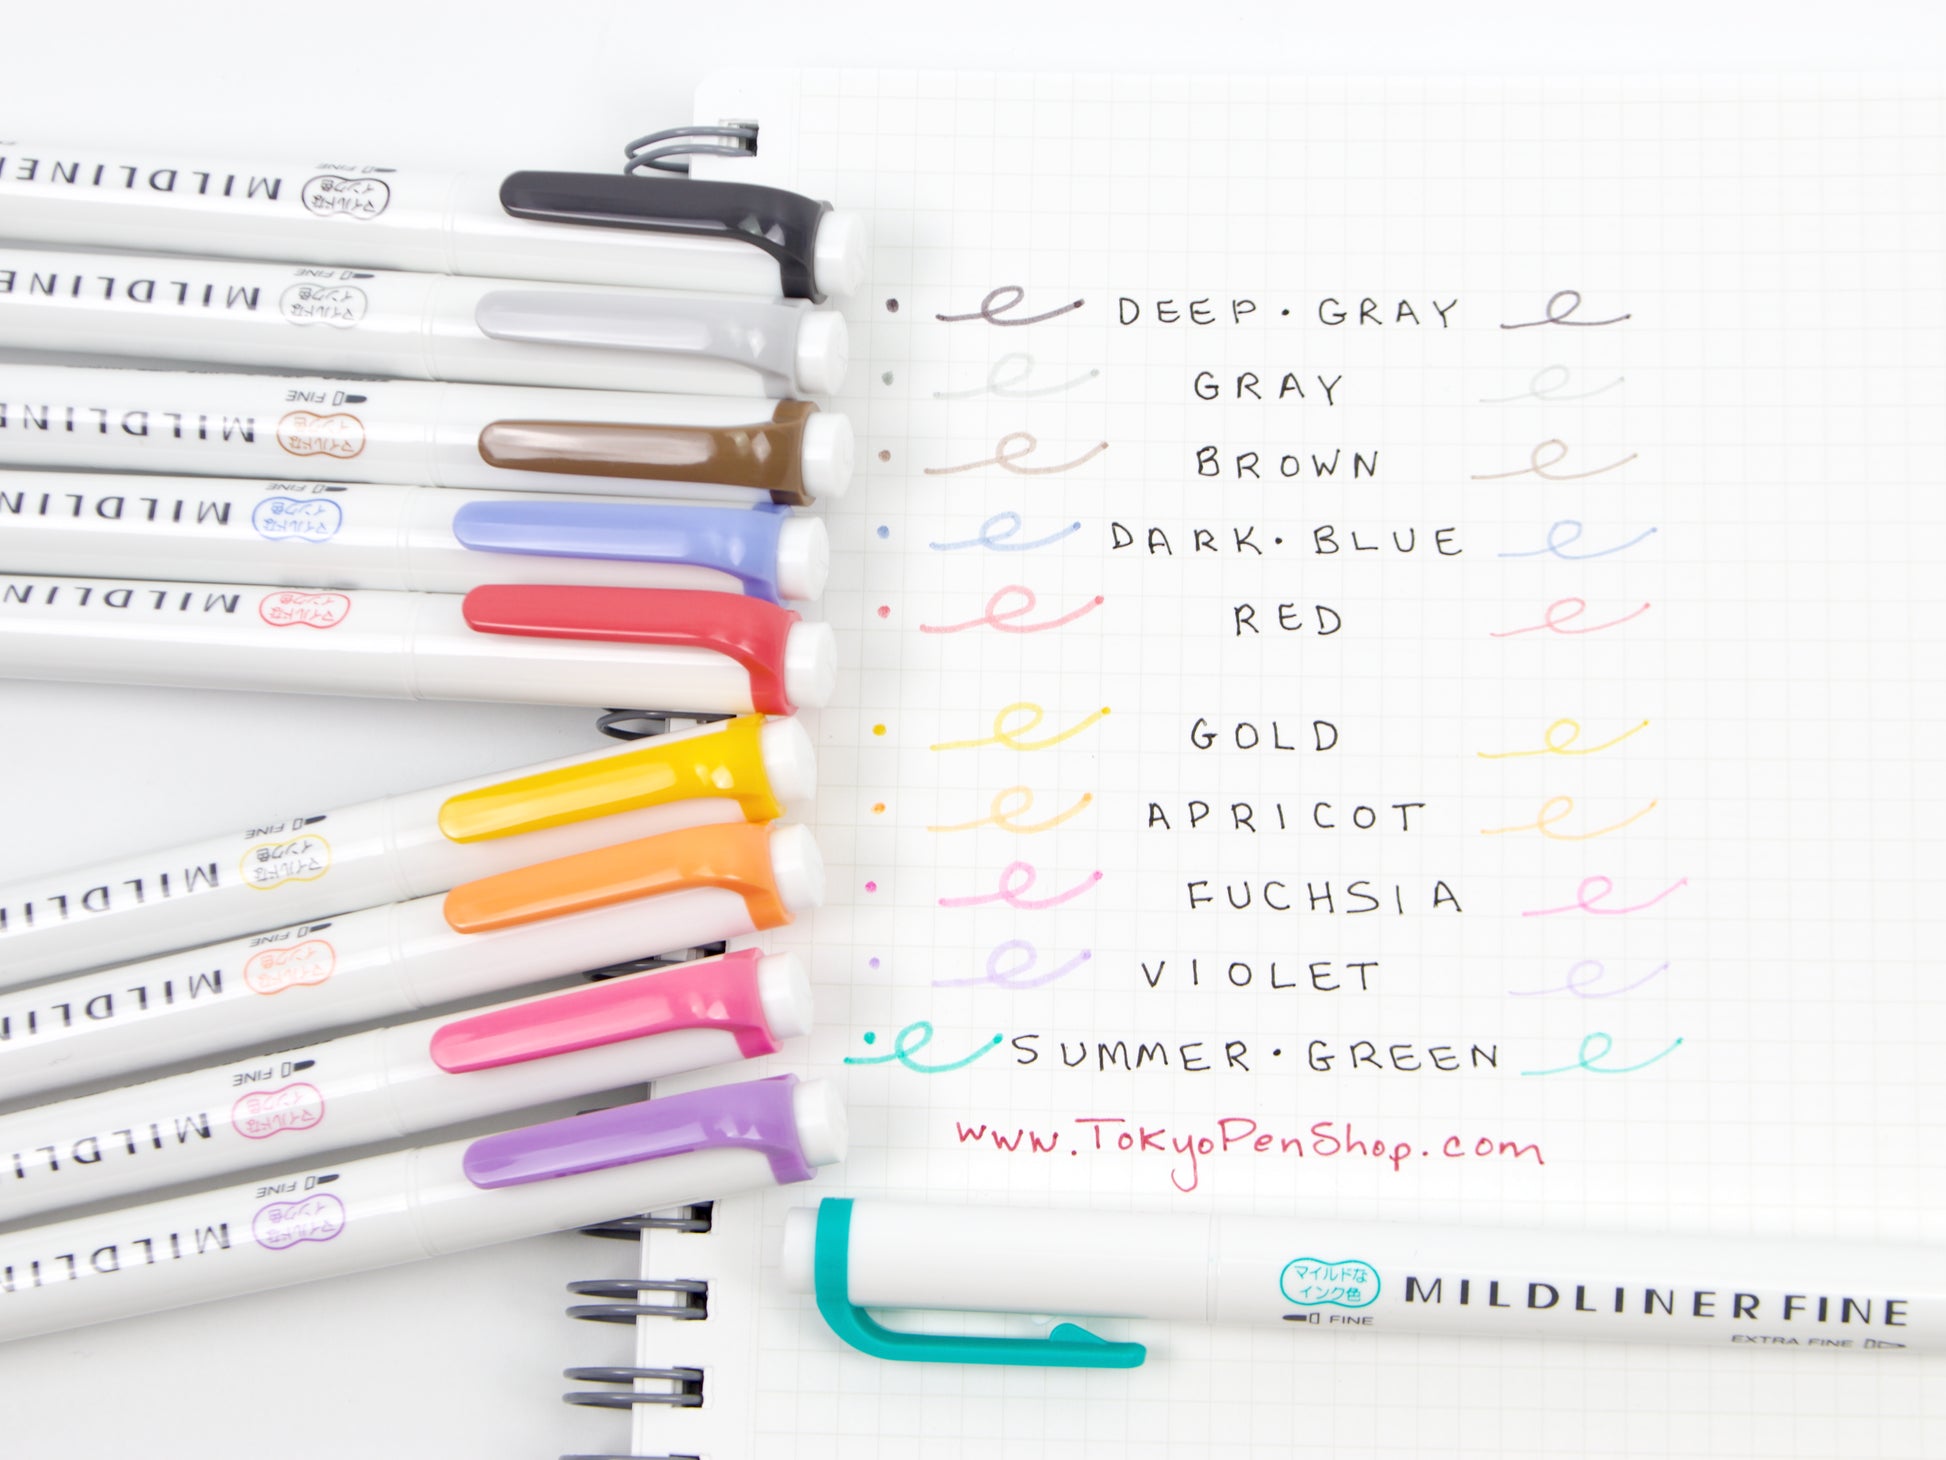 MILDLINER
マイルドな
インク色
FINE
MILDLINE
マイルドな
インク色
FINE
MILDLINE
マイルドな
インク色
FINE
MILDLIN
マイルドな
インク色
FINE
MILDLIN
マイルドな
インク色
MILDLI
マイルドな
インク色
FINE
MILDLIN
マイルドな
インク色
FINE
MILDLI
マイルドな
インク色
FINE
MILDLIN
マイルドな
インク色
FINE
DEEP·GRAY
GRAY
BROWN
DARK·BLUE
RED
GOLD
APRICOT
FUCHSIA
VIOLET
SUMMER·GREEN
www.TokyoPenShop.com
マイルドな
インク色
FINE
MILDLINER FINE
EXTRA FINE